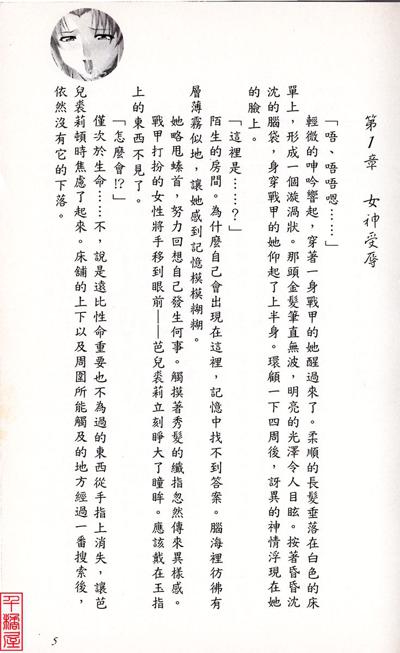 第1章　女神受辱
「唔、唔唔嗯……」
輕微的呻吟響起，穿著一身戰甲的她醒過來了。柔順的長髮垂落在白色的床
單上，形成一個漩渦狀。那頭金髮筆直無波，明亮的光澤令人目眩。按著昏昏沈
沈的腦袋，身穿戰甲的她仰起了上半身。環顧一下四周後，訝異的神情浮現在她
的臉上。
「這裡是……？」
陌生的房間。為什麼自己會出現在這裡，記憶中找不到答案。腦海裡彷彿有
層薄霧似地，讓她感到記憶模模糊糊。
她略甩螓首，努力回想自己發生何事。觸摸著秀髮的纖指忽然傳來異樣感。
戰甲打扮的女性將手移到眼前——芭兒裘莉立刻睜大了瞳眸。應該戴在玉指
上的東西不見了。
「怎麼會!?」
僅次於生命……不，說是遠比性命重要也不為過的東西從手指上消失，讓芭
兒裘莉頓時焦慮了起來。床舖的上下以及周圍所能觸及的地方經過一番搜索後，
依然沒有它的下落。
5
千橘屋